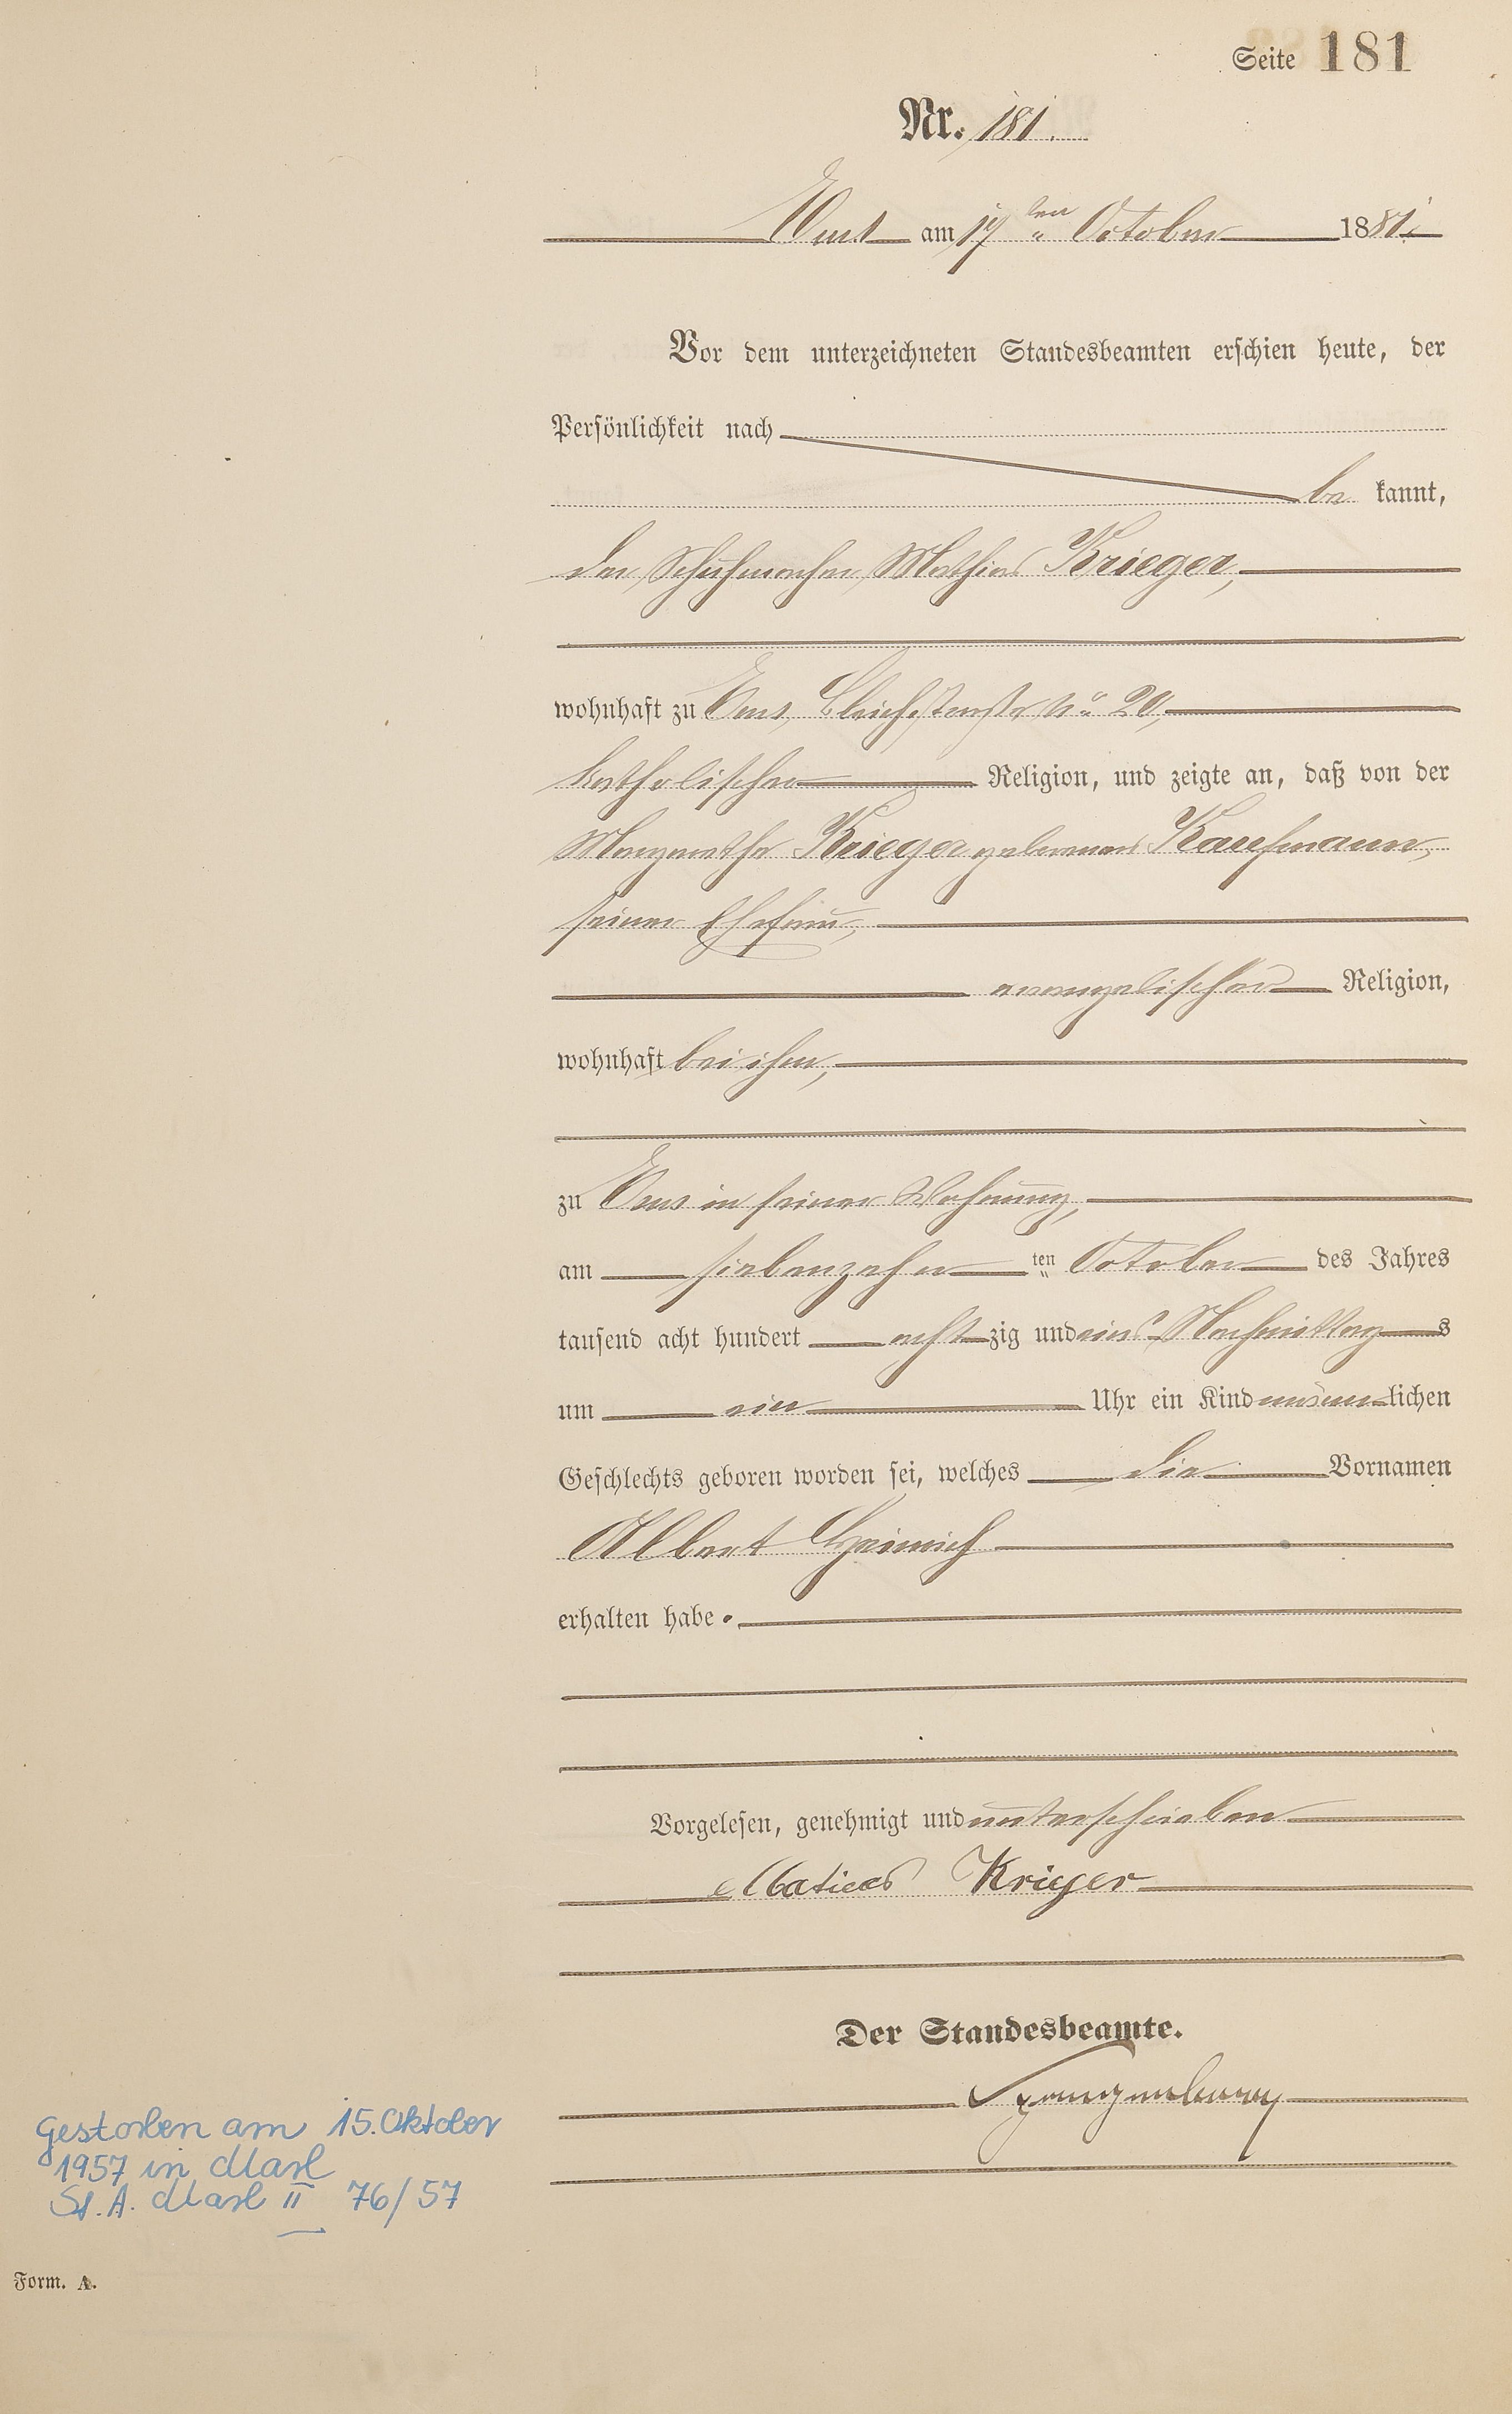 Seite 181
Nr. 181.
Ems am 17ten October 1881.
Vor dem unterzeichneten Standesbeamten erschien heute, der
Persönlichkeit nach
be kannt,
der Schuhmacher Mathias Krieger,
wohnhaft zu Ems, No 20,
katholischer Religion, und zeigte an, daß von der
Margaretha Krieger geborenen Kaufmann,
seiner Ehefrau,
evangelischer Religion,
wohnhaft bei ihm,
zu Ems in seiner Wohnung,
am siebenzehn ten October des Jahres
tausend acht hundert acht zig und eins Nachmittag s
um ein Uhr ein Kind männ lichen
Geschlechts geboren worden sei, welches die Vornamen
Albert Heinrich
erhalten habe.
Vorgelesen, genehmigt und unterschrieben
Matieas Krieger
Der Standesbeamte.
Spangenberg
gestorben am 15. Oktober
1957 in Marl
St. A. Marl II 76/57
Form. A.